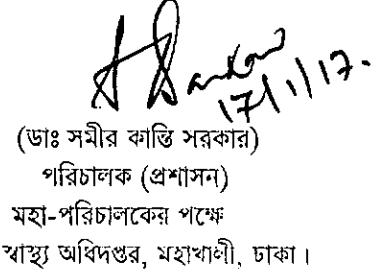 17/1/17.
(ডাঃ সমীর কান্তি সরকার)
পরিচালক (প্রশাসন)
মহা-পরিচালকের পক্ষে
স্বাস্থ্য অধিদপ্তর, মহাখালী, ঢাকা।